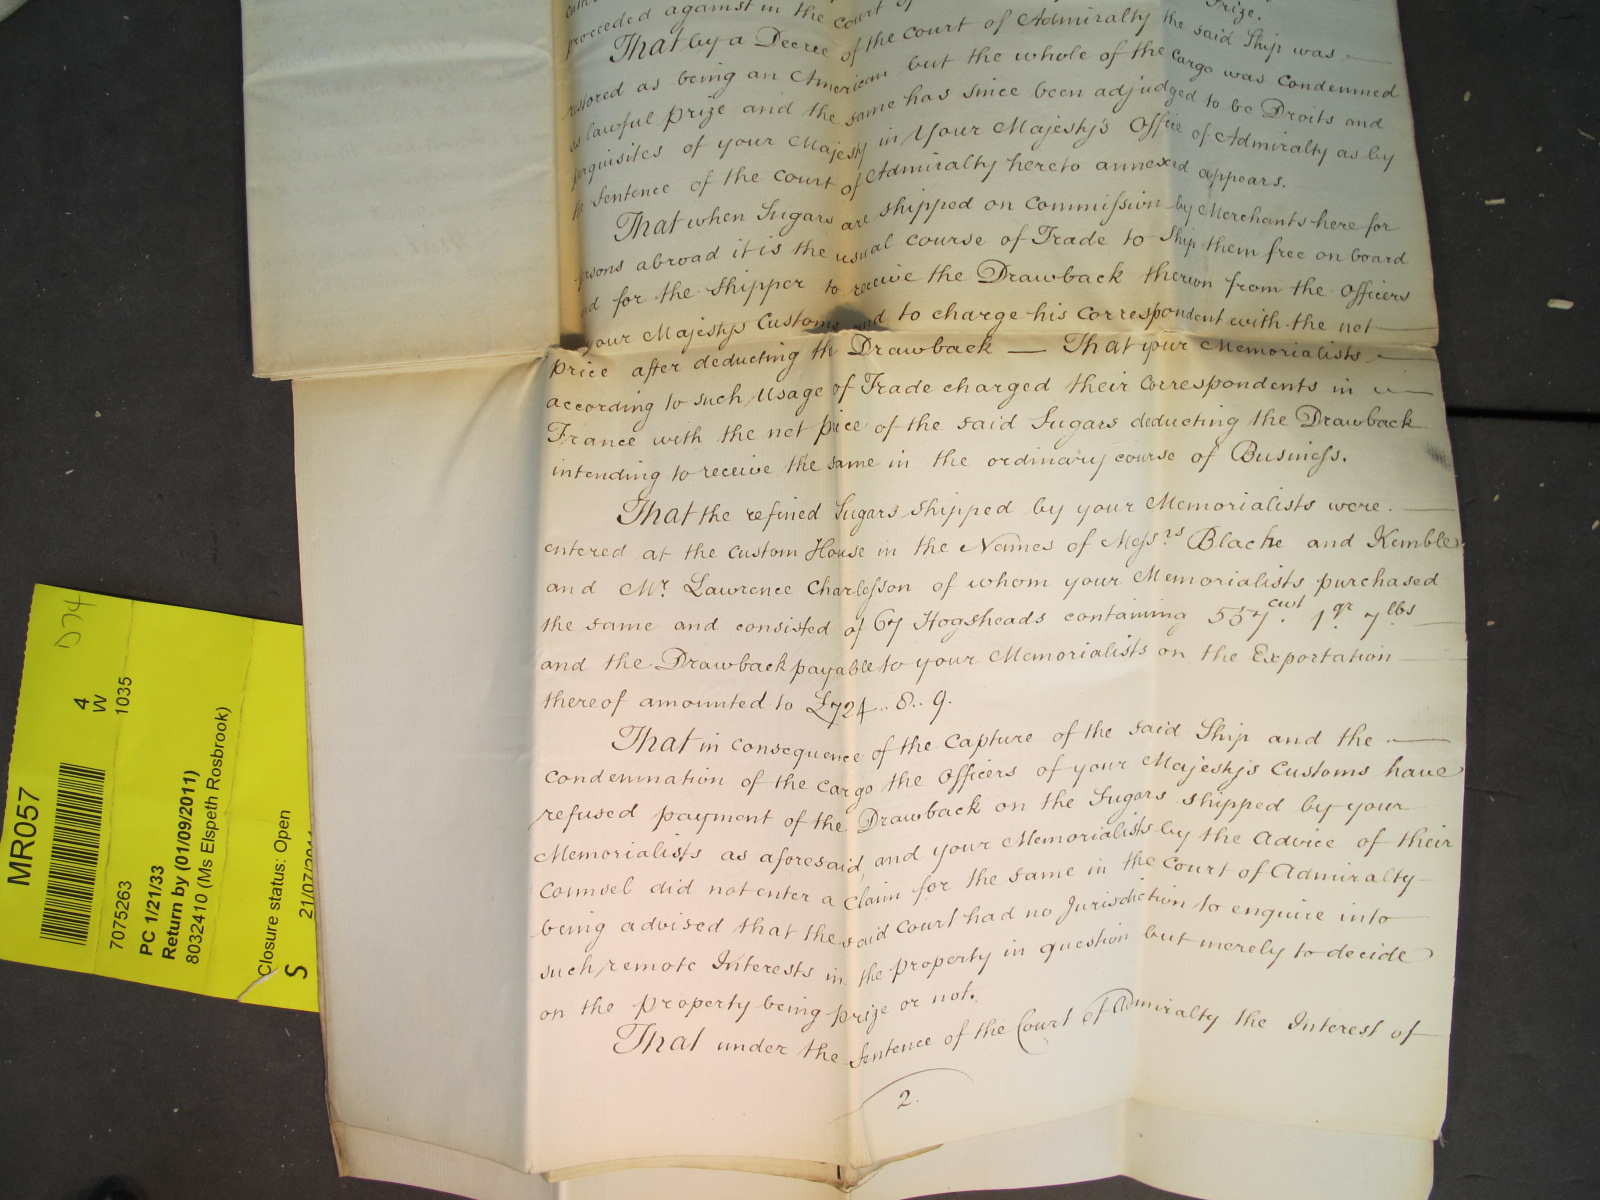 Prize.
proceeded against in the court of
That by a Decree of the court of Admiralty the said Ship was
restored as being an American but the whole of the cargo was condemned
as lawful prize and the same has since been adjudged to be Droits and
perquisites of your Majesty in Your Majesty's Office of Admiralty as by
Sentence of the court of Admiralty hereto annexed appears.
That when Sugars are shipped on commission by Merchants here for
persons abroad it is the usual course of Trade to Ship them free on board
and for the Shipper to receive the Drawback thereon from the Officers
your Majestys Customs and to charge his correspondent with the net
price after deducting th Drawback — That your Memorialists
according to such Usage of Trade charged their correspondents in
France with the net price of the said Sugars deducting the Drawback
intending to receive the same in the ordinary course of Business.
That the refined Sugars shipped by your Memorialists were.
entered at the Custom House in the Names of Messrs Blache and Kemble
and Mr. Lawrence Charlesson of whom your Memorialists purchased
the same and consisted of 67 Hogsheads containing 557 cwt. 1 qr 7 lbs
and the Drawback payable to your Memorialists on the Exportation
thereof amounted to £724.. 8.. 9.
That in consequence of the capture of the said Ship and the
condemnation of the cargo the Officers of your Majesty's Customs have
refused payment of the Drawback on the Sugars shipped by your
Memorialists as aforesaid and your Memorialists by the Advice of their
Counsel did not enter a claim for the same in the Court of Admiralty
being advised that the said Court had no Jurisdiction to enquire into
such remote Interests in the property in question but merely to decide
on the property being prize or not.
That under the Sentence of the Court of Admiralty the Interest of
2.
D74
MR057
4
W
1035
7075263
PC 1/21/33
Return by (01/09/2011)
8032410 (Ms Elspeth Rosbrook)
Closure status: Open
S